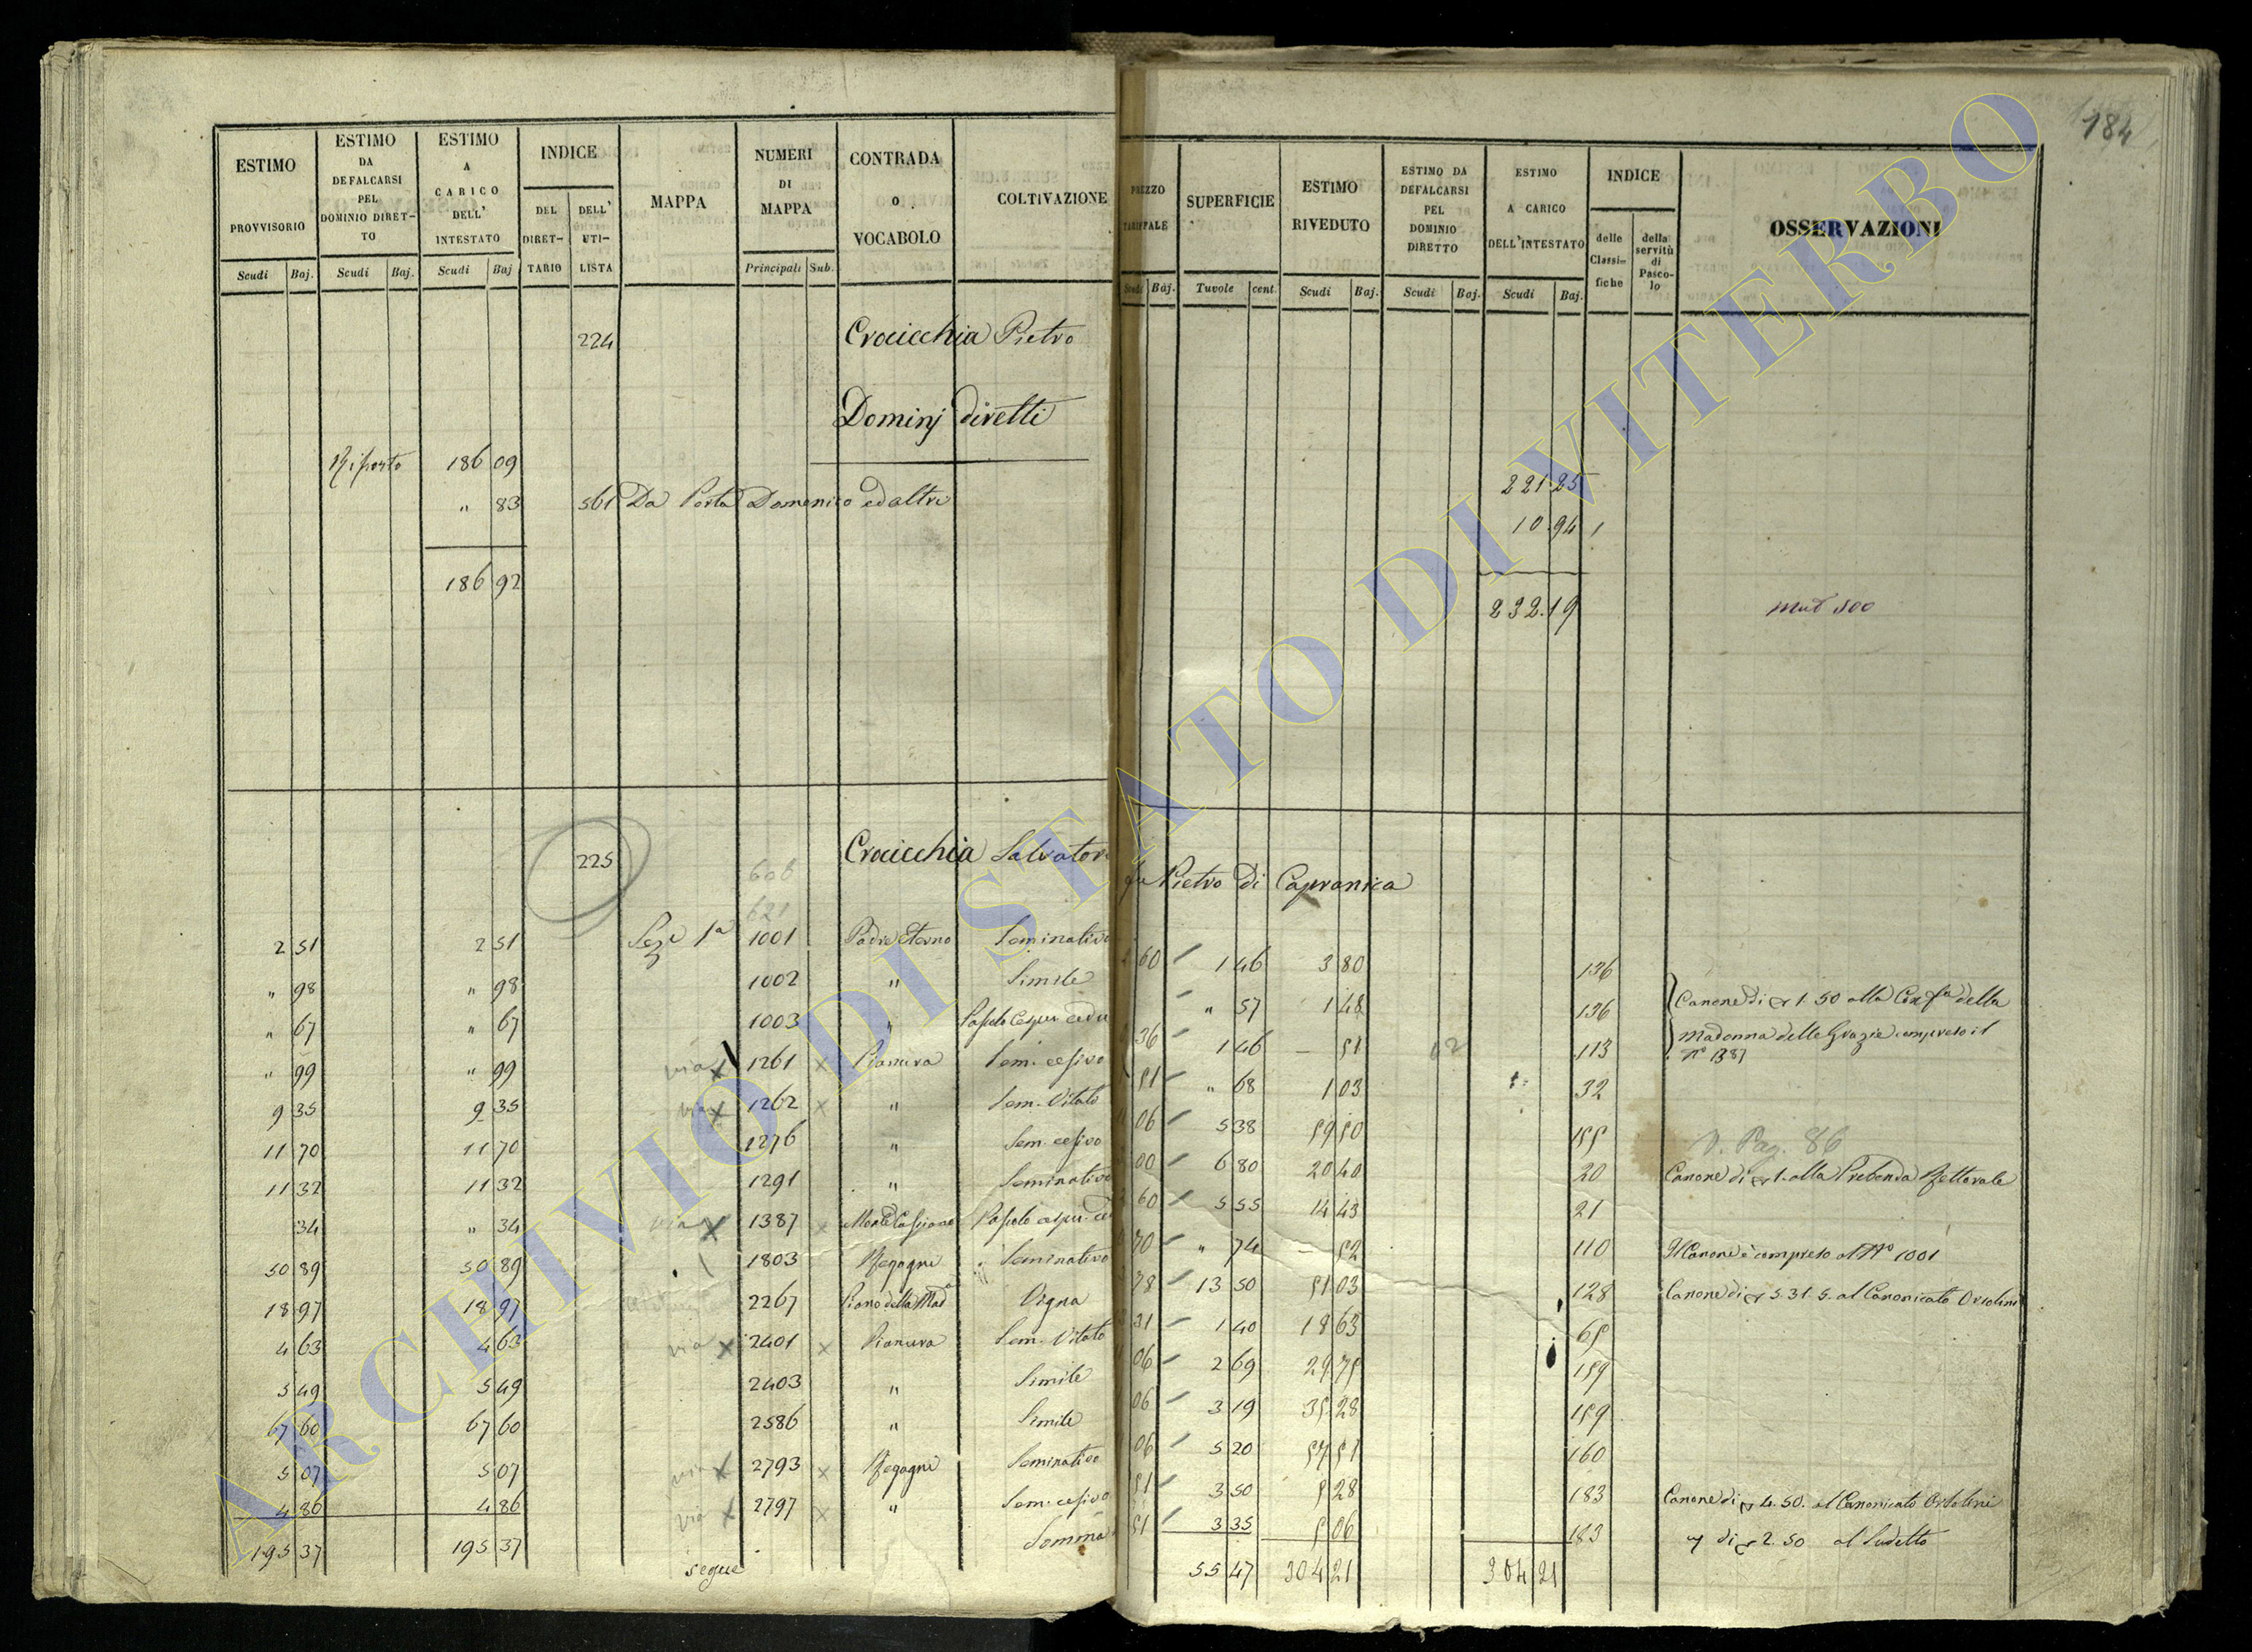 184
ESTIMO PROVVISORIO Scudi Baj.
ESTIMO DA DEFALCARSI PEL DOMINIO DIRET-TO Scudi Baj.
ESTIMO A CARICO DELL' INTESTATO Scudi Baj
INDICE DEL DIRET-TARIO DELL' UTI-LISTA
MAPPA
NUMERI DI MAPPA Principali Sub.
CONTRADA o VOCABOLO
COLTIVAZIONE
PREZZO TARIFFALE Scudi Baj.
SUPERFICIE Tavole cent.
ESTIMO RIVEDUTO Scudi Baj.
ESTIMO DA DEFALCARSI PEL DOMINIO DIRETTO Scudi Baj.
ESTIMO A CARICO DELL'INTESTATO Scudi Baj.
INDICE delle Classi-fiche della servitù di Pasco-lo
OSSERVAZIONI
224 Crocicchia Pietro
Dominj diretti
Riporto 186 09 221.25
" 83 561 Da Porta Domenico ed altri 10.94 1
186 92 232.19 Mut 500
225 Crocicchia Salvatore qu Pietro di Capranica
608
621
2 51 2 51 Seze 1a 1001 Padre Eterno Seminativo 60 1 46 3 80 136
" 98 " 98 1002 " Simile " 57 1 48 136 Canone di 1.50 alla Confa della
" 67 " 67 1003 " Pascolo Cespu. cedu 36 1 46 — 51 113 Madonna delle Grazie compreso il No 1387
" 99 " 99 via x 1261 x Pianura Sem. cesivo 51 " 68 1 03 32
9 35 9 35 via x 1262 x " Sem. Vitato 06 5 38 59 50 155
11 70 11 70 1276 " Sem. cesivo 00 6 80 20 40 20 V. Pag. 86
11 32 11 32 1291 " Seminativo 60 5 55 14 43 21 Canone di 1. alla Prebenda Rettorale
34 " 34 via x 1387 x Monte Casciano Pascolo cespu. 70 " 74 — 52 110 Il Canone è compreso al No 1001
50 89 50 89 1803 Regogni Seminativo 78 13 50 51 03 128 Canone di 5.31.5. al Canonicato Orsolini
18 97 18 97 2267 Piano della Mada Vigna 31 1 40 18 63 65
4 63 4 63 via x 2401 x Pianura Sem. Vitato 06 2 69 29 75 159
5 49 5 49 2403 " Simile 06 3 19 35 28 159
67 60 67 60 2586 " Simile 06 5 20 57 51 160
5 07 5 07 via x 2793 x Regogni Seminativo 51 3 50 5 28 183 Canone di 4.50. al Canonicato Orsolini
4 86 4 86 via x 2797 x " Sem. cesivo 51 3 35 5 06 183 di 2.50 al Sudetto
195 37 195 37 segue Somma 55 47 304 21 304 21
ARCHIVIO DI STATO DI VITERBO